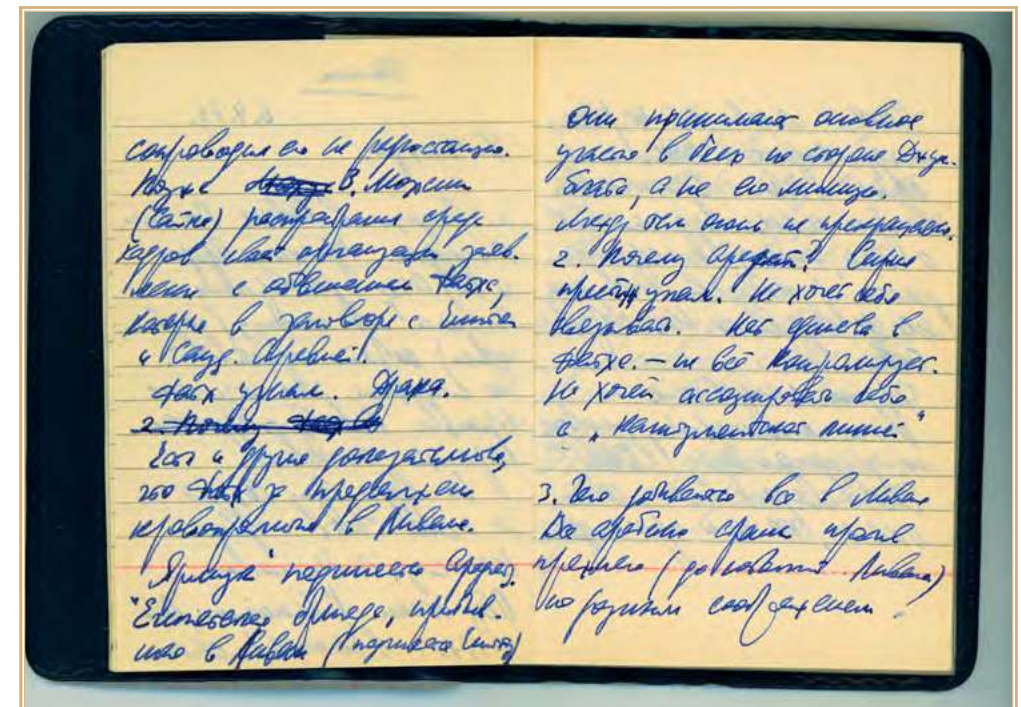 сопроводил его на радиостанцию.
Позже В. Мохсин
(Сайка) распространил среди
кадров своей организации заяв-
ление с обвинением Фатха,
которые в заговоре с Египтом
и Сауд. Аравией.
Фатх узнал. Драка.
2. Почему
Есть и другие доказательства,
что Фатх за продолжение
кровопролития в Ливане.
"Ярмук" подчиняется Арафату.
Египетская бригада,
в Ливан (подчиняется Египту)
они принимают основное
участие в боях на стороне Джун-
блата, а не его милиция.
Между тем огонь не прекращают.
2. Почему Арафат? Сирия
Не хочет себя
связывать. Нет единства в
Фатхе. – не всё контролирует.
Не хочет ассоциировать себя
с „капитулянтской линией"
3. Чего добиваются все в Ливане
Все арабские страны против
прежнего (до событий Ливана)
по разным соображениям!